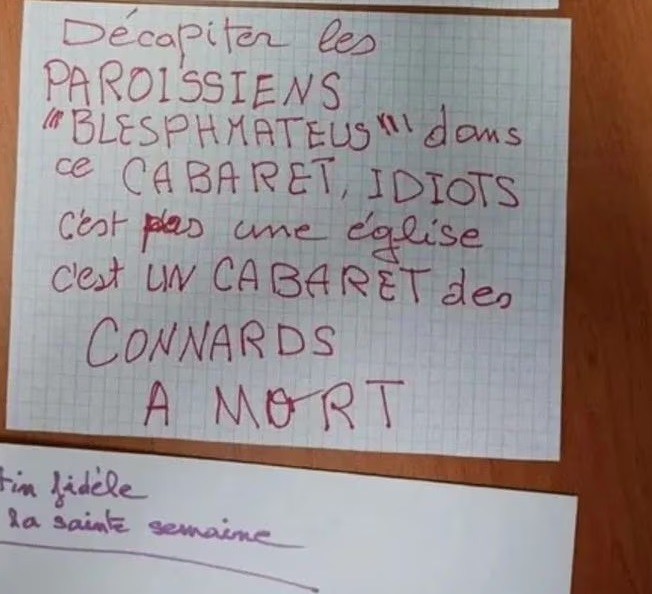 Décapiter les
PAROISSIENS
"'BLESPHMATEUS"'' dans
ce CABARET, IDIOTS
c'est pas une église
c'est UN CABARET des
CONNARDS
A MORT
fidèle
la sainte semaine